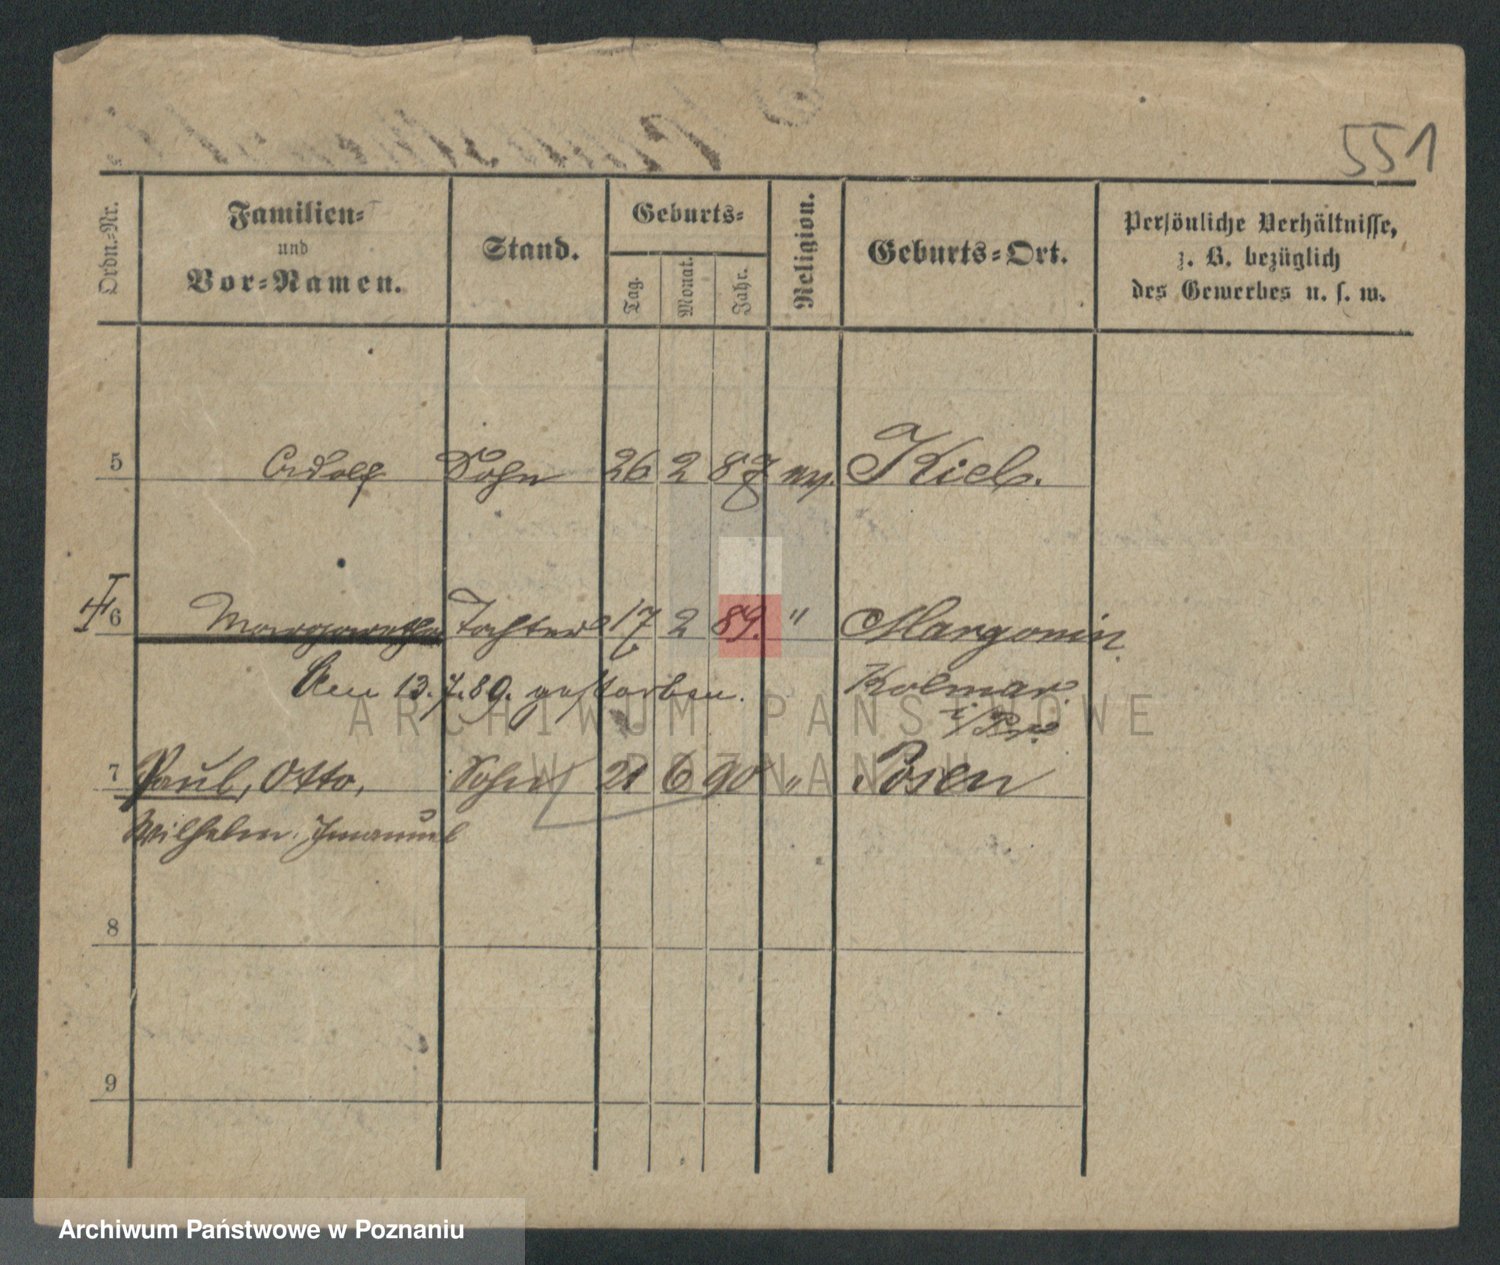 551
Ordn.-Nr.
Familien-
und
Vor-Namen.
Stand.
Geburts-
Tag.
Monat.
Jahr.
Religion.
Geburts-Ort.
Persönliche Verhältnisse,
z. B. bezüglich
des Gewerbes u. s. w.
5 Adolf Sohn 26 2 87 ev. Kiel.
6 Margarethe Tochter 17 2 89. " Margonin
Am 13.7.89. gestorben. Kolmar
i/Pr.
7 Paul, Otto, Sohn 21 6 90 " Posen
Wilhelm. Imanuel
8
9
ARCHIWUM PAŃSTWOWE
W POZNANIU
Archiwum Państwowe w Poznaniu